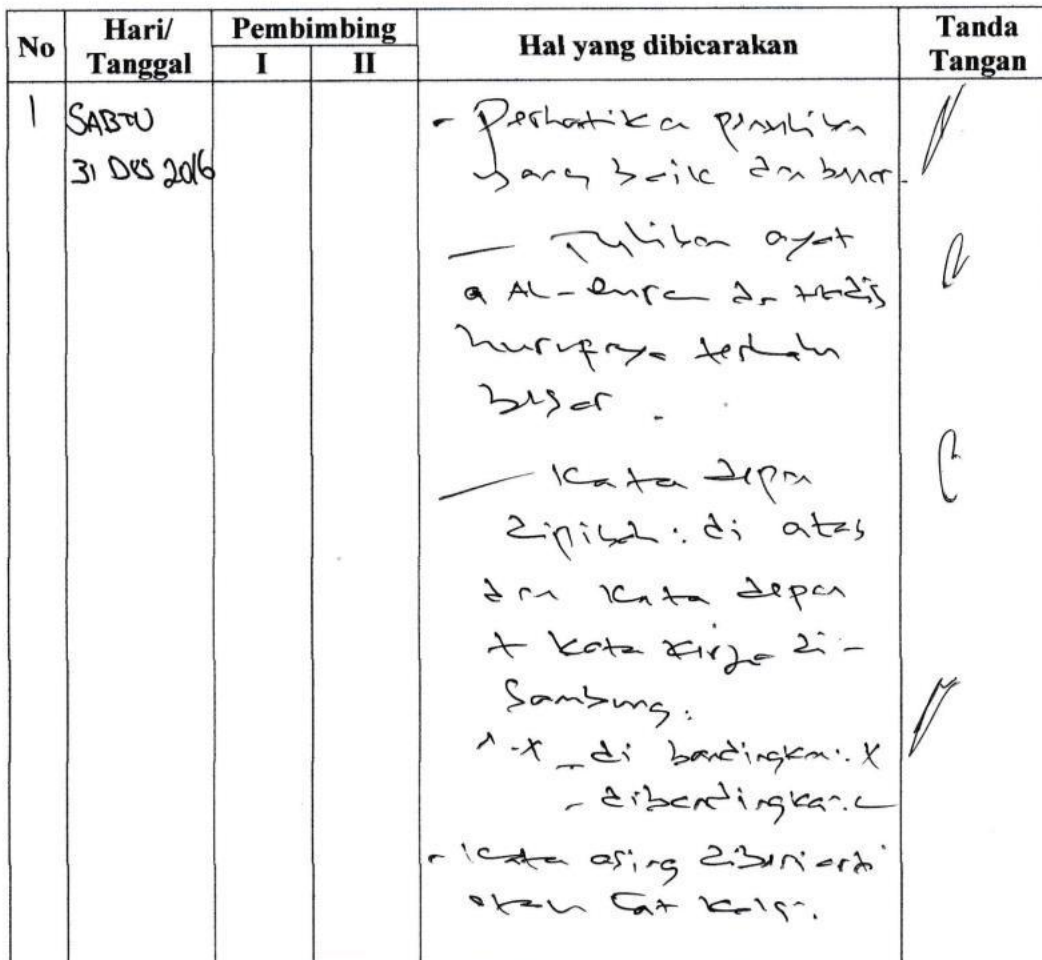 No Hari/ Tanggal Pembimbing I II Hal yang dibicarakan Tanda Tangan
1 SABTU
31 DES 2016
- Perhatika penulisan
yang baik dan benar.
— Tulisan ayat
Al-Quran dan Hadis
hurufnya terlalu
besar.
— Kata depan
dipisah: di atas
dan kata depan
+ kata kerja di-
sambung:
di bandingkan: X
- dibandingkan:
- Kata asing diberi arti
atau